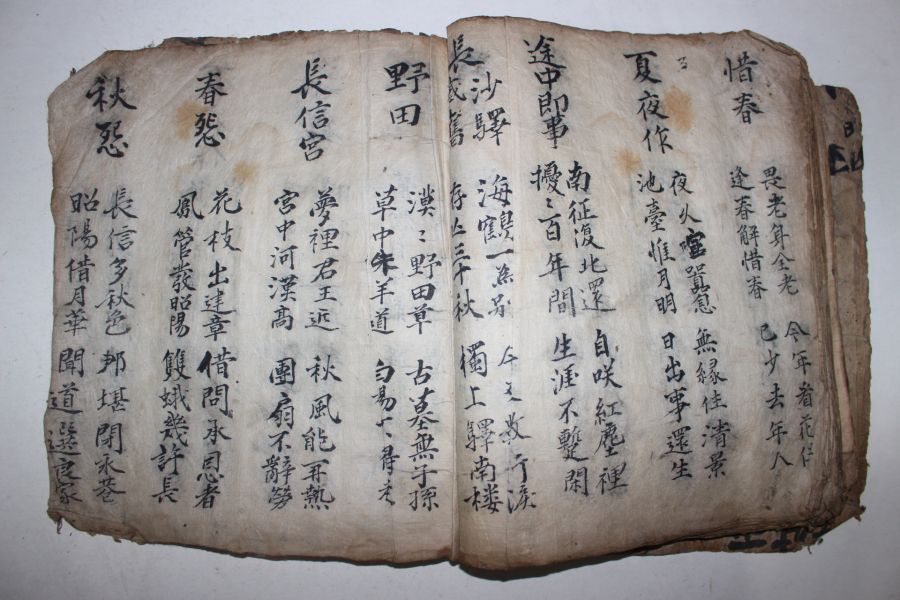 惜春
畏老身全老
逢春解惜春
今年看花伴
已少去年人
夏夜作
夜久喧囂息
池臺惟月明
無緣住清景
日出事還生
途中即事
南征復北還
擾〻百年間
自咲紅塵裡
生涯不蹔閑
長沙驛
感舊
海鶴一爲別
存亡三十秋
今來數行淚
獨上驛南楼
野田
漠〻野田草
草中牛羊道
古墓無子孫
白楊不得老
長信宮
夢裡君王近
宮中河漢高
秋風能再熱
團扇不辭勞
春怨
花枝出建章
鳳管發昭陽
借問承恩者
雙蛾幾許長
秋怨
長信多秋色
昭陽借月華
那堪閉永巷
聞道選良家